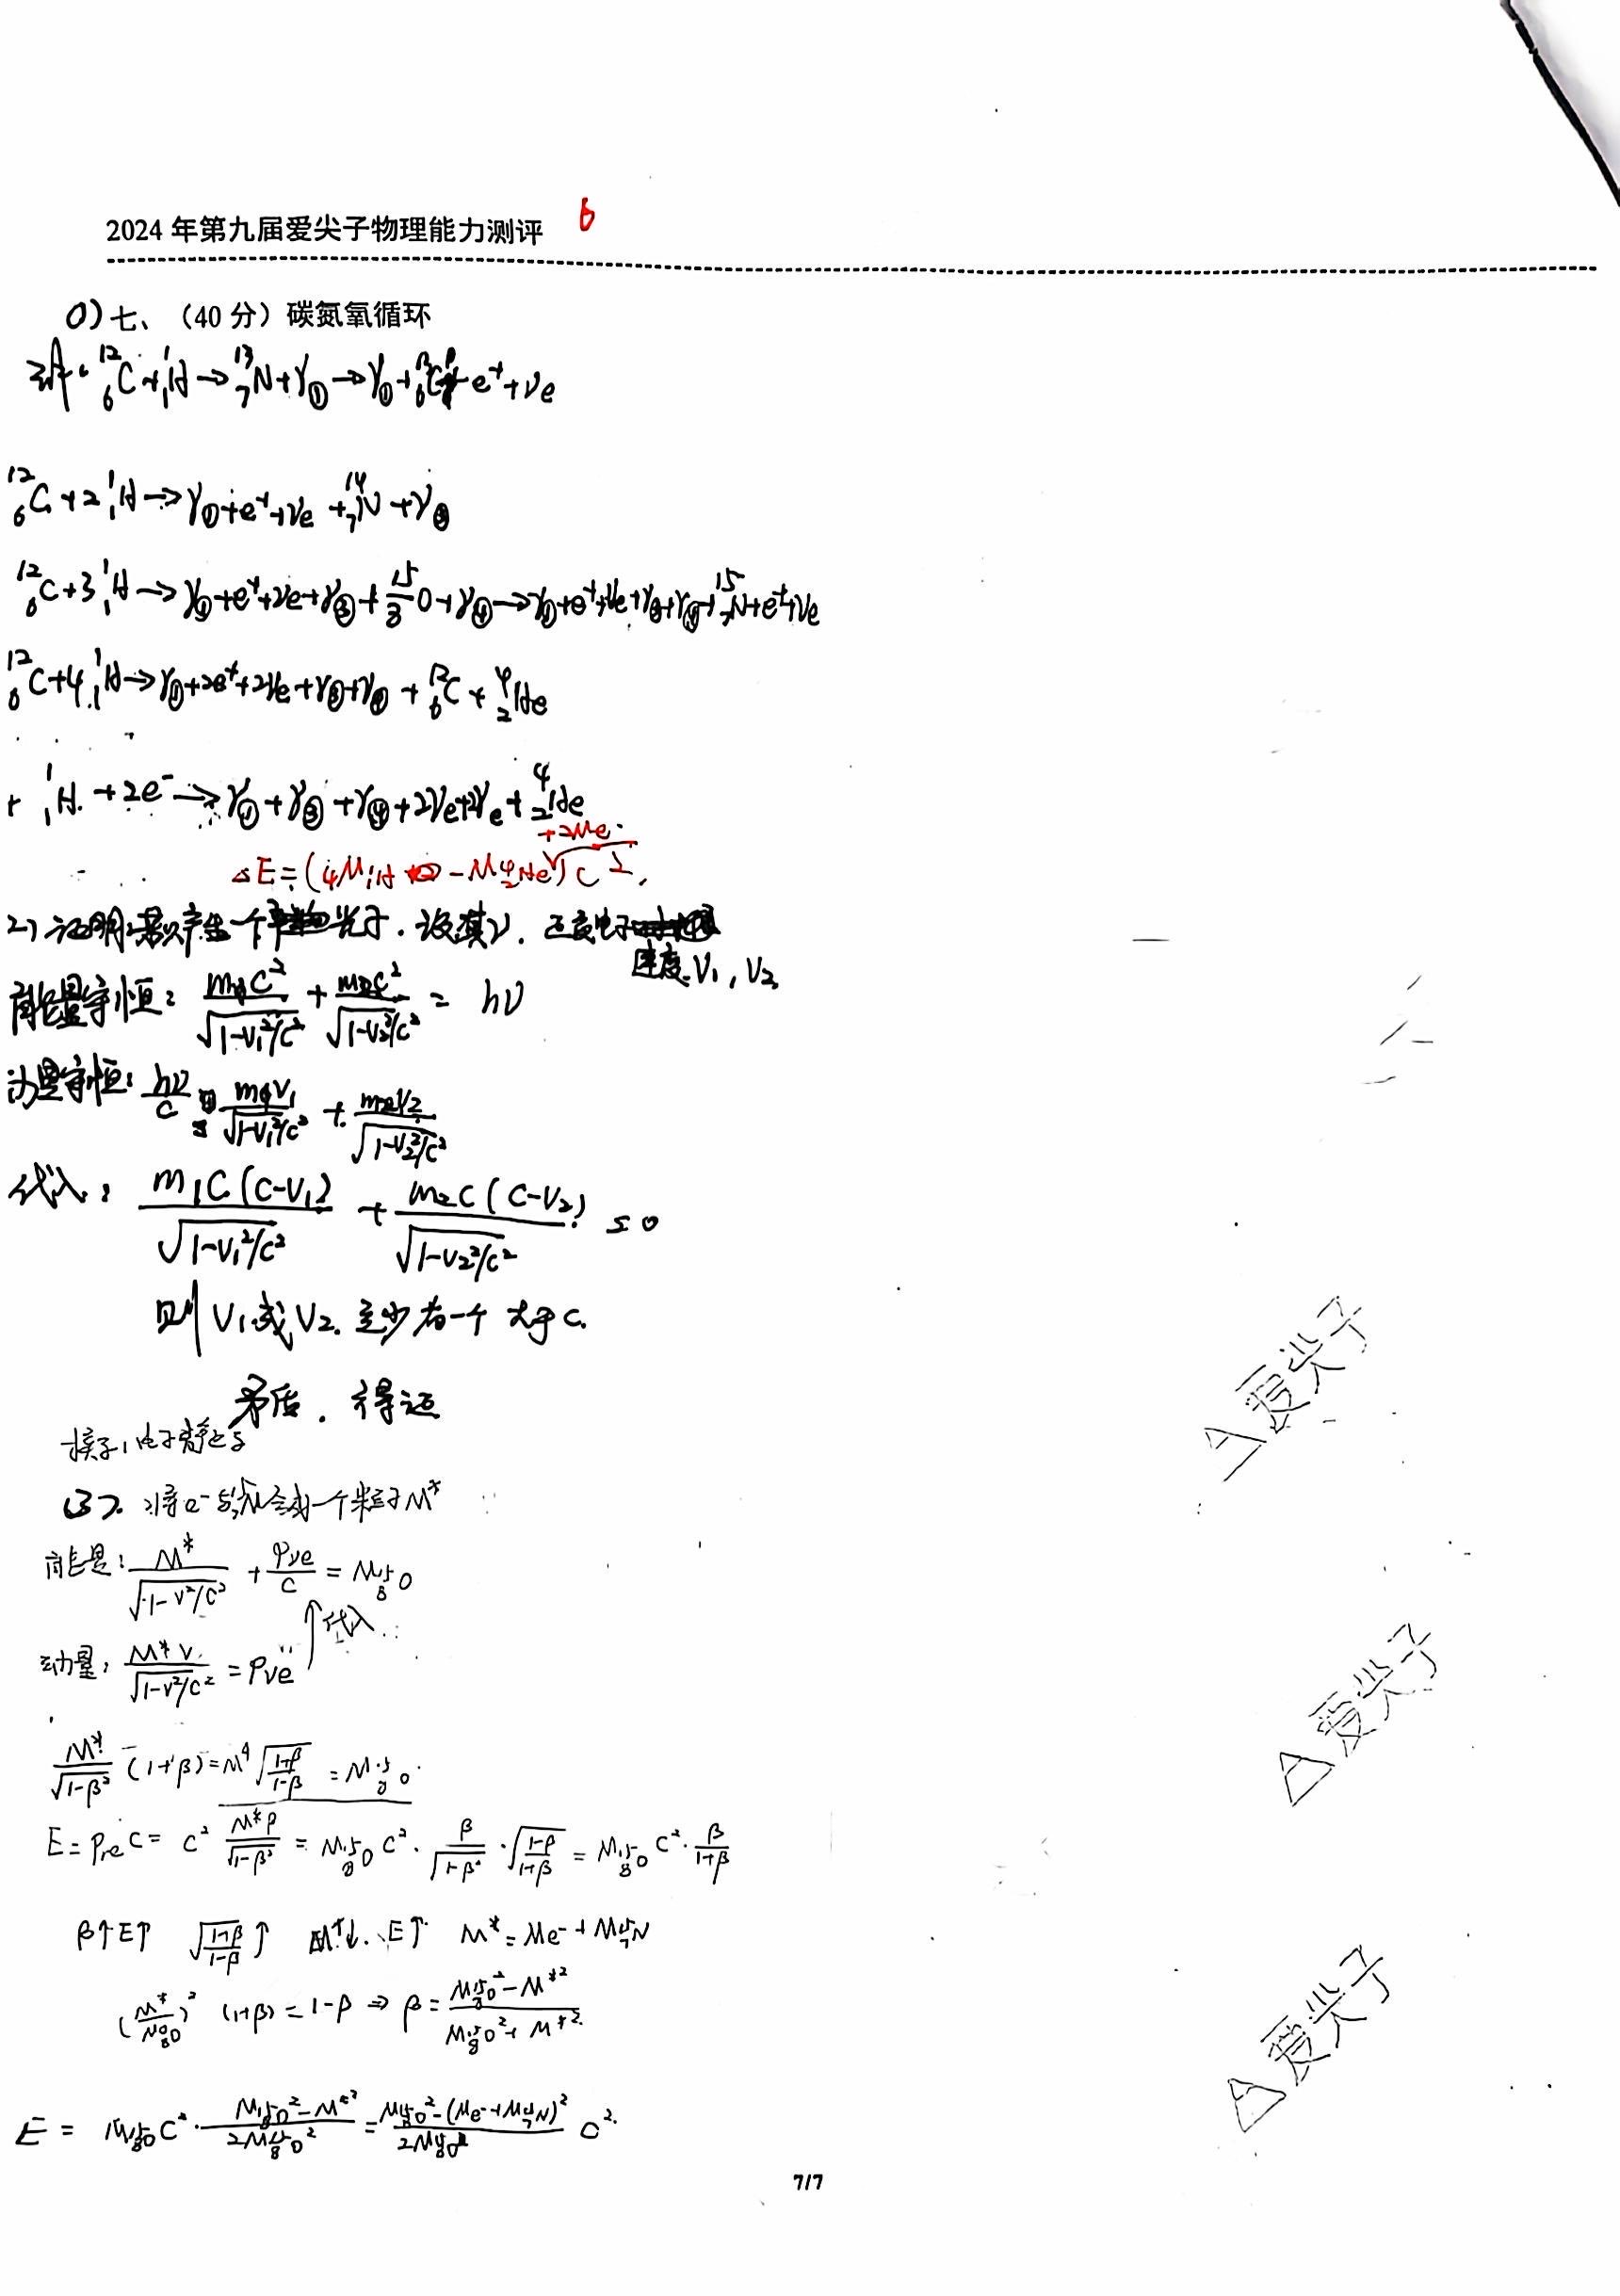 2024 年第九届爱尖子物理能力测评 6
七、（40 分）碳氮氧循环
¹²₆C + ¹₁H → ¹³₇N + γ① → γ① + ¹³₆C + e⁺ + νe
¹²₆C + 2¹₁H → γ① + e⁺ + νe + ¹⁴₇N + γ③
¹²₆C + 3¹₁H → γ① + e⁺ + νe + γ③ + ¹⁵₈O + γ④ → γ① + e⁺ + νe + γ③ + γ④ + ¹⁵₇N + e⁺ + νe
¹²₆C + 4¹₁H → γ① + 2e⁺ + 2νe + γ③ + γ④ + ¹²₆C + ⁴₂He
¹₁H + 2e⁻ → γ① + γ③ + γ④ + 2νe + 2γe + ⁴₂He
+2Me
ΔE = (4M¹₁H - M⁴₂He) c²
2) 证明：若只产生一个光子. 设其ν. 正负电子
速度 V₁, V₂
能量守恒： m₁c²/√(1-V₁²/c²) + m₂c²/√(1-V₂²/c²) = hν
动量守恒： hν/c = m₁V₁/√(1-V₁²/c²) + m₂V₂/√(1-V₂²/c²)
代入： m₁c(c-V₁)/√(1-V₁²/c²) + m₂c(c-V₂)/√(1-V₂²/c²) = 0
则 V₁ 或 V₂ 至少有一个大于 c.
矛盾. 得证
(3). 将 e⁻ 与 ¹⁵₇N 合成一个粒子 M*
能量： M*/√(1-v²/c²) + Pνe/c = M¹⁵₈O
↑代入
动量： M*v/√(1-v²/c²) = Pνe
M*/√(1-β²) (1+β) = M*√((1+β)/(1-β)) = M¹⁵₈O
E = Pνe c = c² M*β/√(1-β²) = M¹⁵₈O c² · β/√(1-β²) · √((1-β)/(1+β)) = M¹⁵₈O c² · β/(1+β)
β↑E↑ √((1+β)/(1-β))↑ M*↓. E↑ M* = Me⁻ + M¹⁵₇N
(M*/M¹⁵₈O)² (1+β) = 1-β ⇒ β = (M¹⁵₈O² - M*²)/(M¹⁵₈O² + M*²)
E = M¹⁵₈O c² · (M¹⁵₈O² - M*²)/(2M¹⁵₈O²) = (M¹⁵₈O² - (Me⁻ + M¹⁵₇N)²)/(2M¹⁵₈O) c²
7/7
爱尖子
爱尖子
爱尖子